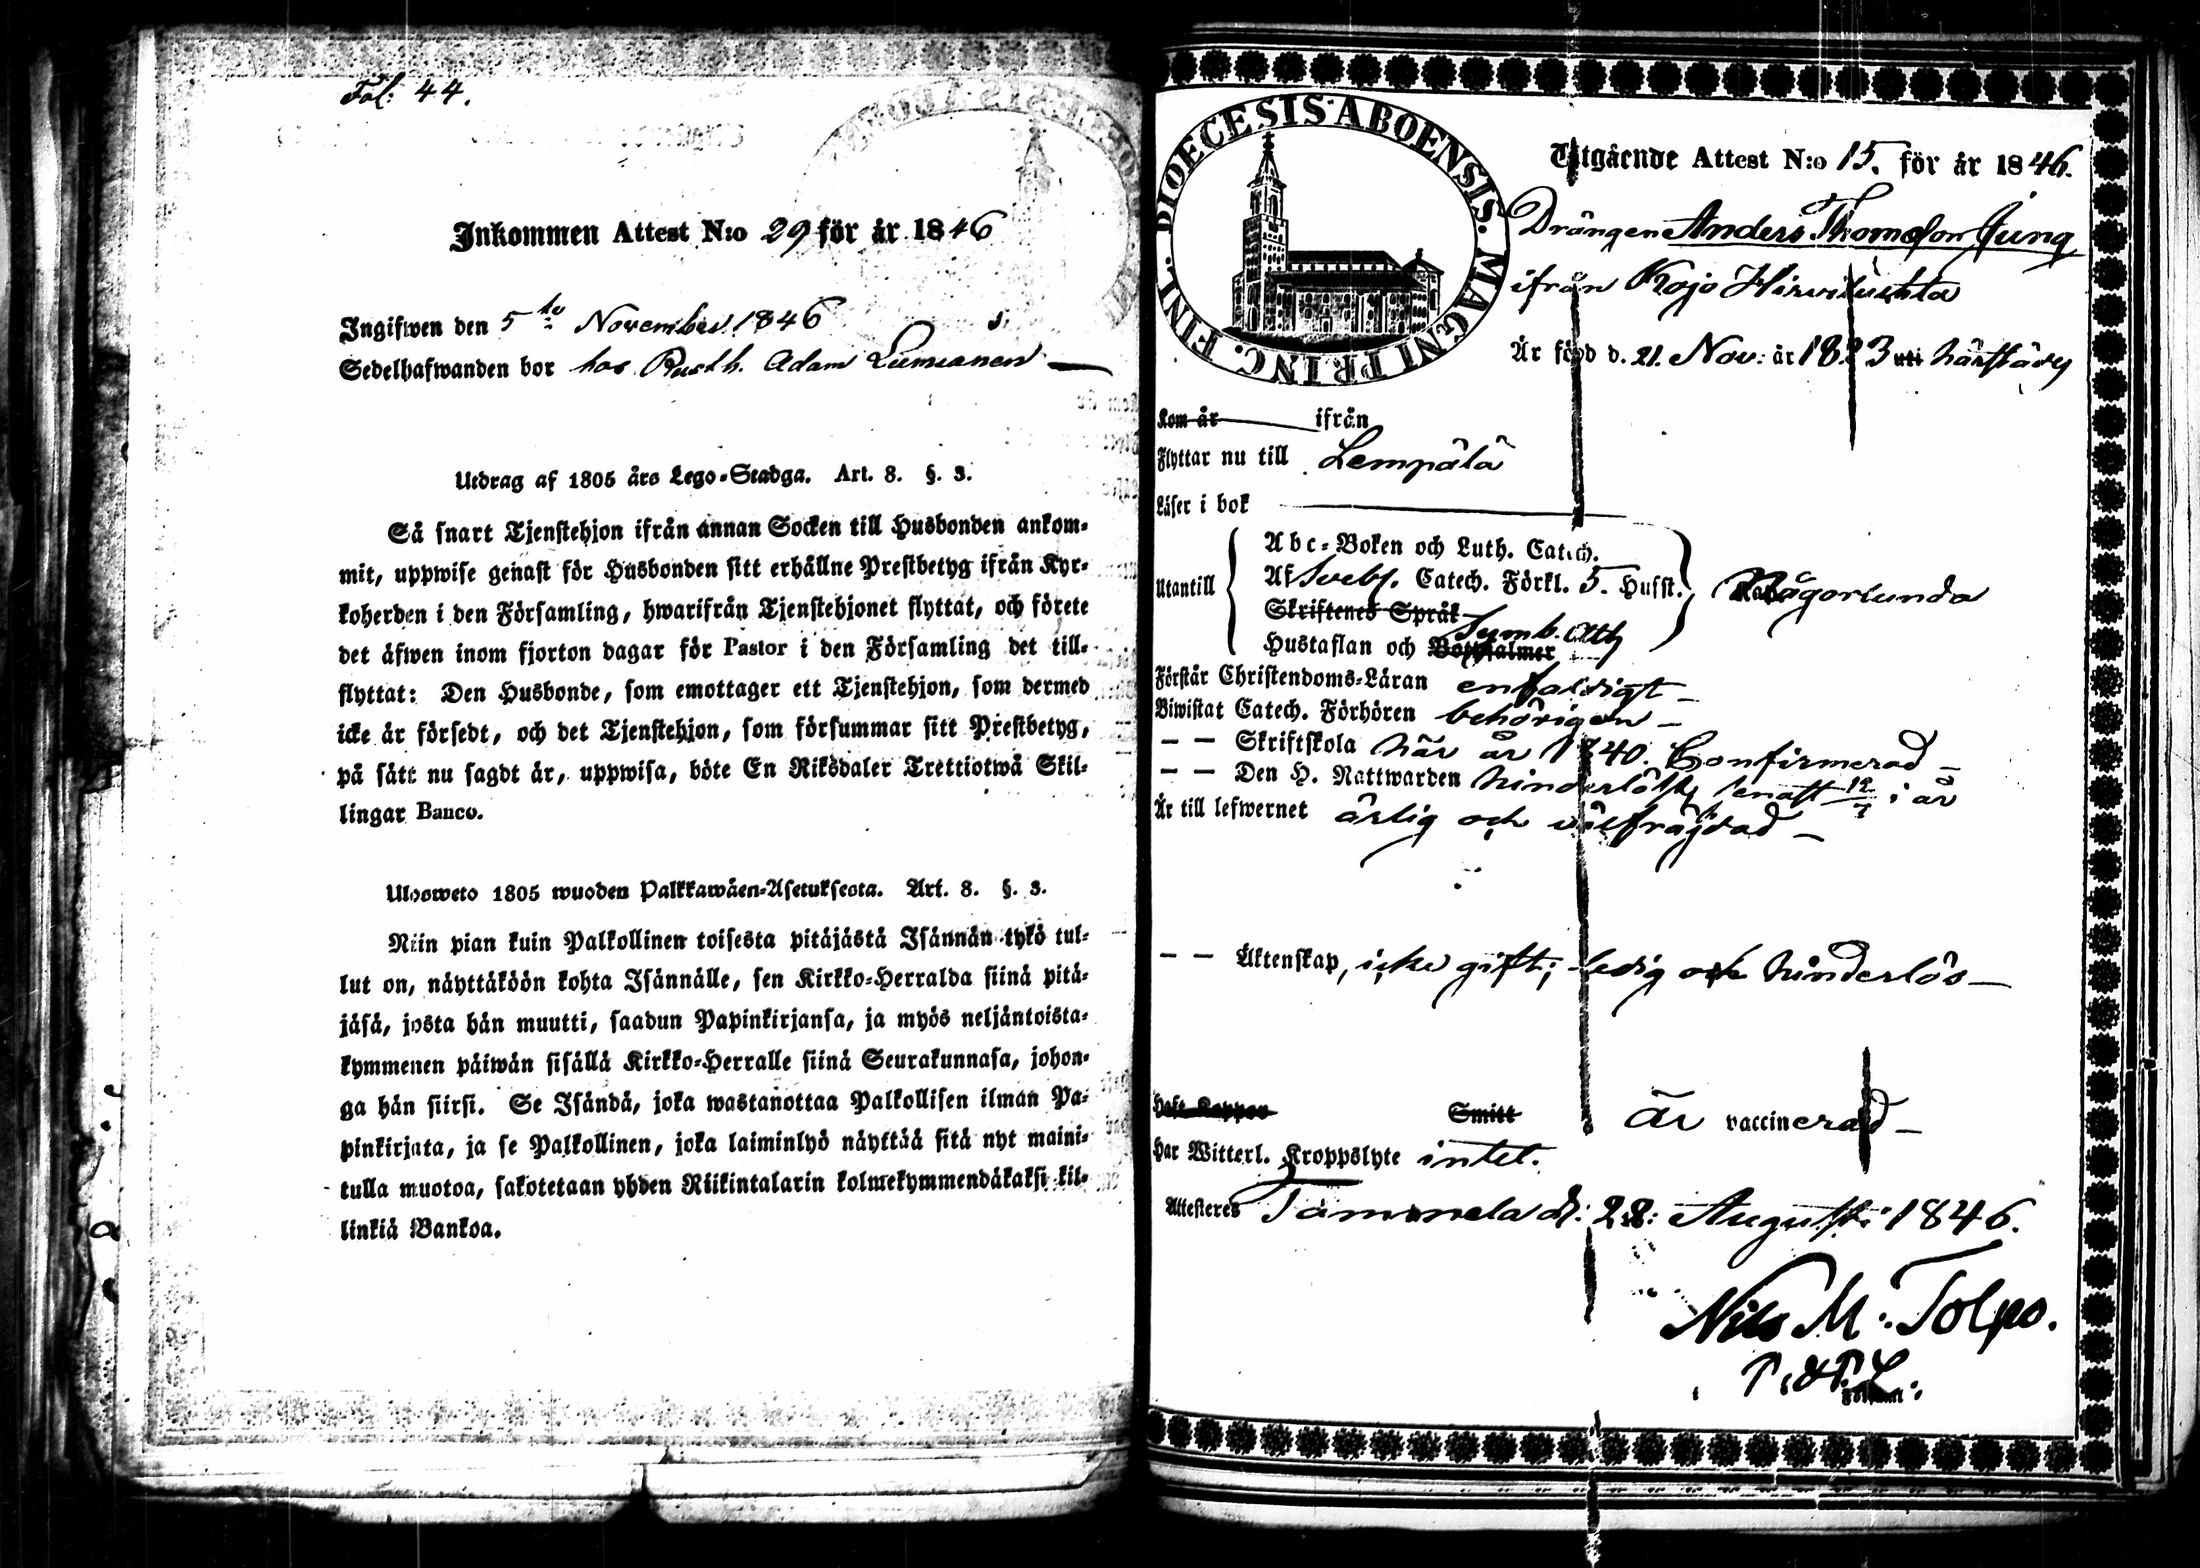 Fol: 44.
Inkommen Attest N:o 29 för år 1846
Ingifwen den 5 te November 1846
Sedelhafwanden bor hos Rusth. Adam
Utdrag af 1805 års Lego-Stadga. Art. 8. §. 3.
Så snart Tjenstehjon ifrån annan Socken till Husbonden ankom-
mit, uppwise genast för Husbonden sitt erhållne Prestbetyg ifrån Kyr-
koherden i den Församling, hwarifrån Tjenstehjonet flyttat, och förete
det äfwen inom fjorton dagar för Pastor i den Församling det till-
flyttat: Den Husbonde, som emottager ett Tjenstehjon, som dermed
icke är försedt, och det Tjenstehjon, som försummar sitt Prestbetyg,
på sätt nu sagdt är, uppwisa, böte En Riksdaler Trettiotwå Skil-
lingar Banco.
Ulosweto 1805 wuoden Palkkawäen-Asetuksesta. Art. 8. §. 3.
Niin pian kuin Palkollinen toisesta pitäjästä Isännän tykö tul-
lut on, näyttäköön kohta Isännälle, sen Kirkko-Herralda siinä pitä-
jäsä, josta hän muutti, saadun Papinkirjansa, ja myös neljäntoista-
kymmenen päiwän sisällä Kirkko-Herralle siinä Seurakunnasa, johon-
ga hän siirsi. Se Isändä, joka wastanottaa Palkollisen ilman Pa-
pinkirjata, ja se Palkollinen, joka laiminlyö näyttää sitä nyt maini-
tulla muotoa, sakotetaan yhden Riikintalarin kolmekymmendäkaksi kil-
linkiä Bankoa.
DIOECESIS ABOENSIS. MAGNI PRINC. FINL.
Utgående Attest N:o 15. för år 1846.
Drängen Anders Thomasson Ljung
ifrån Kojo Hirviluhta
Är född d. 21. Nov: år 1823 uti härstädes
Kom år ifrån
Flyttar nu till Lempälä
Läser i bok
Utantill
Abc-Boken och Luth. Catech.
Af Svebi. Catech. Förkl. 5. Hufst.
Skriftenes Språk
Hustaflan och Botpsalmer Symb. Ath
Någorlunda
Förstår Christendoms-Läran enfaldigt
Biwistat Catech. Förhören behörigen
— — Skriftskola här år 1840. Confirmerad
— — Den H. Nattwarden hinderlöst, senast i år
Är till lefwernet ärlig och välfräjdad
— — Äktenskap, icke gift; ledig och hinderlös
Haft Koppor Smitt är vaccinerad
Har Witterl. Kroppslyte intet.
Attesteres Tammela d: 28: Augusti 1846.
Nils M: Tolpo.